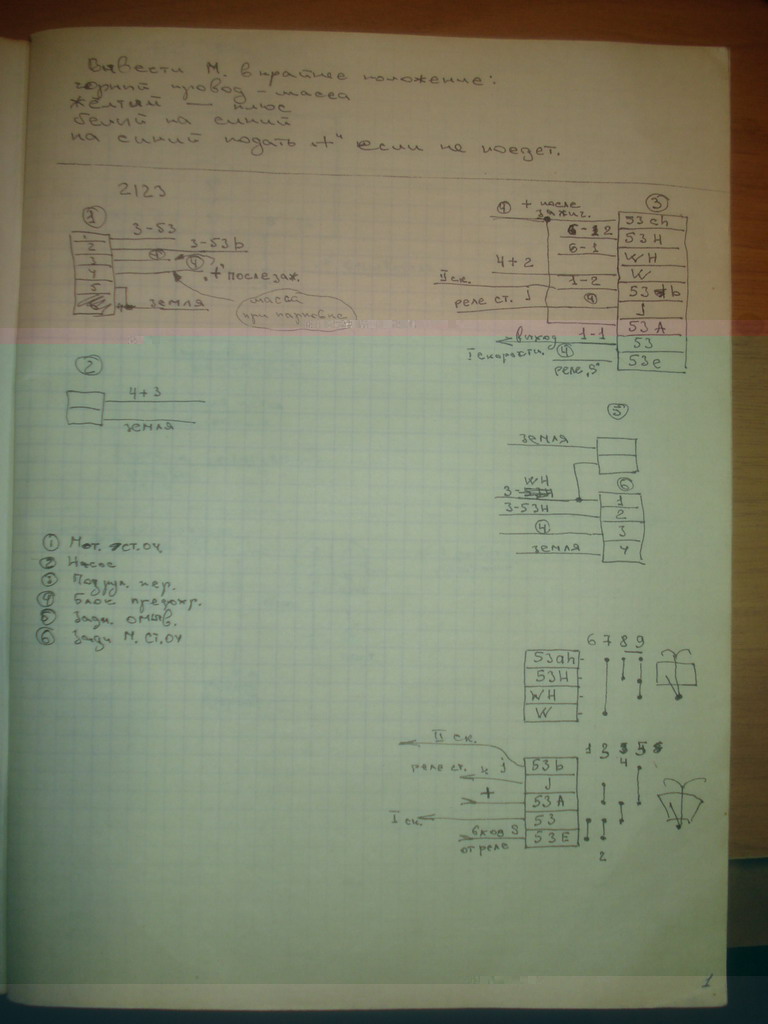 Вывести М. в крайнее положение:
черный провод - масса
желтый — плюс
белый на синий
на синий подать „+" если не поедет.
2123
1
3-53
2
3-53b
3
4
4
„+" после заж.
5
земля
масса
при парковке
3
4
+ после
зажиг.
53ah
6-2
53H
6-1
WH
4+2
W
II ск.
1-2
53b
реле ст. j
4
J
53A
выход
1-1
53
I скорости.
4
53e
реле „S"
2
4+3
земля
5
земля
6
WH
3-
1
3-53H
2
4
3
земля
4
1 Мот. ст.оч
2 Насос
3 Подрул. пер.
4 Блок предохр.
5 Задн. омыв.
6 Задн М. ст.оч
6 7 8 9
53ah
53H
WH
W
II ск.
1 2 3 5
4
53b
реле ст. к j
J
+
53A
I ск.
53
вход S
53E
от реле
2
1